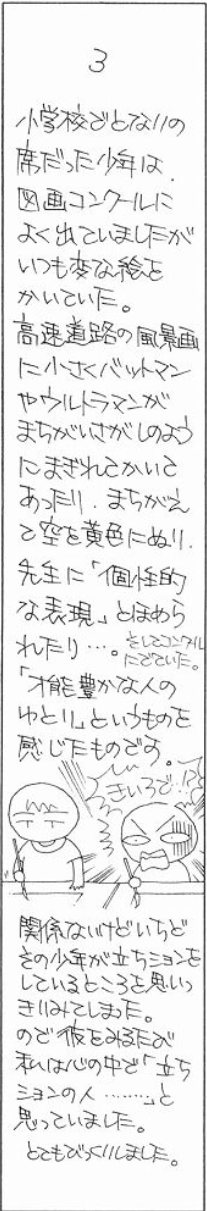 3
小学校でとなりの
席だった少年は、
図画コンクールに
よく出ていましたが
いつも変な絵を
かいていた。
高速道路の風景画
に小さくバットマン
やウルトラマンが
まちがいさがしのよう
にまぎれてかいて
あったり、まちがえ
て空を黄色にぬり、
先生に「個性的
な表現」とほめら
れたり…。
そしてコンクール
にでていた。
「才能豊かな人の
ゆとり」というものを
感じたものです。
きいろで!?
関係ないけどいちど
その少年が立ちションを
しているところを思いっ
きりみてしまった。
ので彼をみるたび
私は心の中で「立ち
ションの人………」と
思っていました。
とてもびっくりしました。